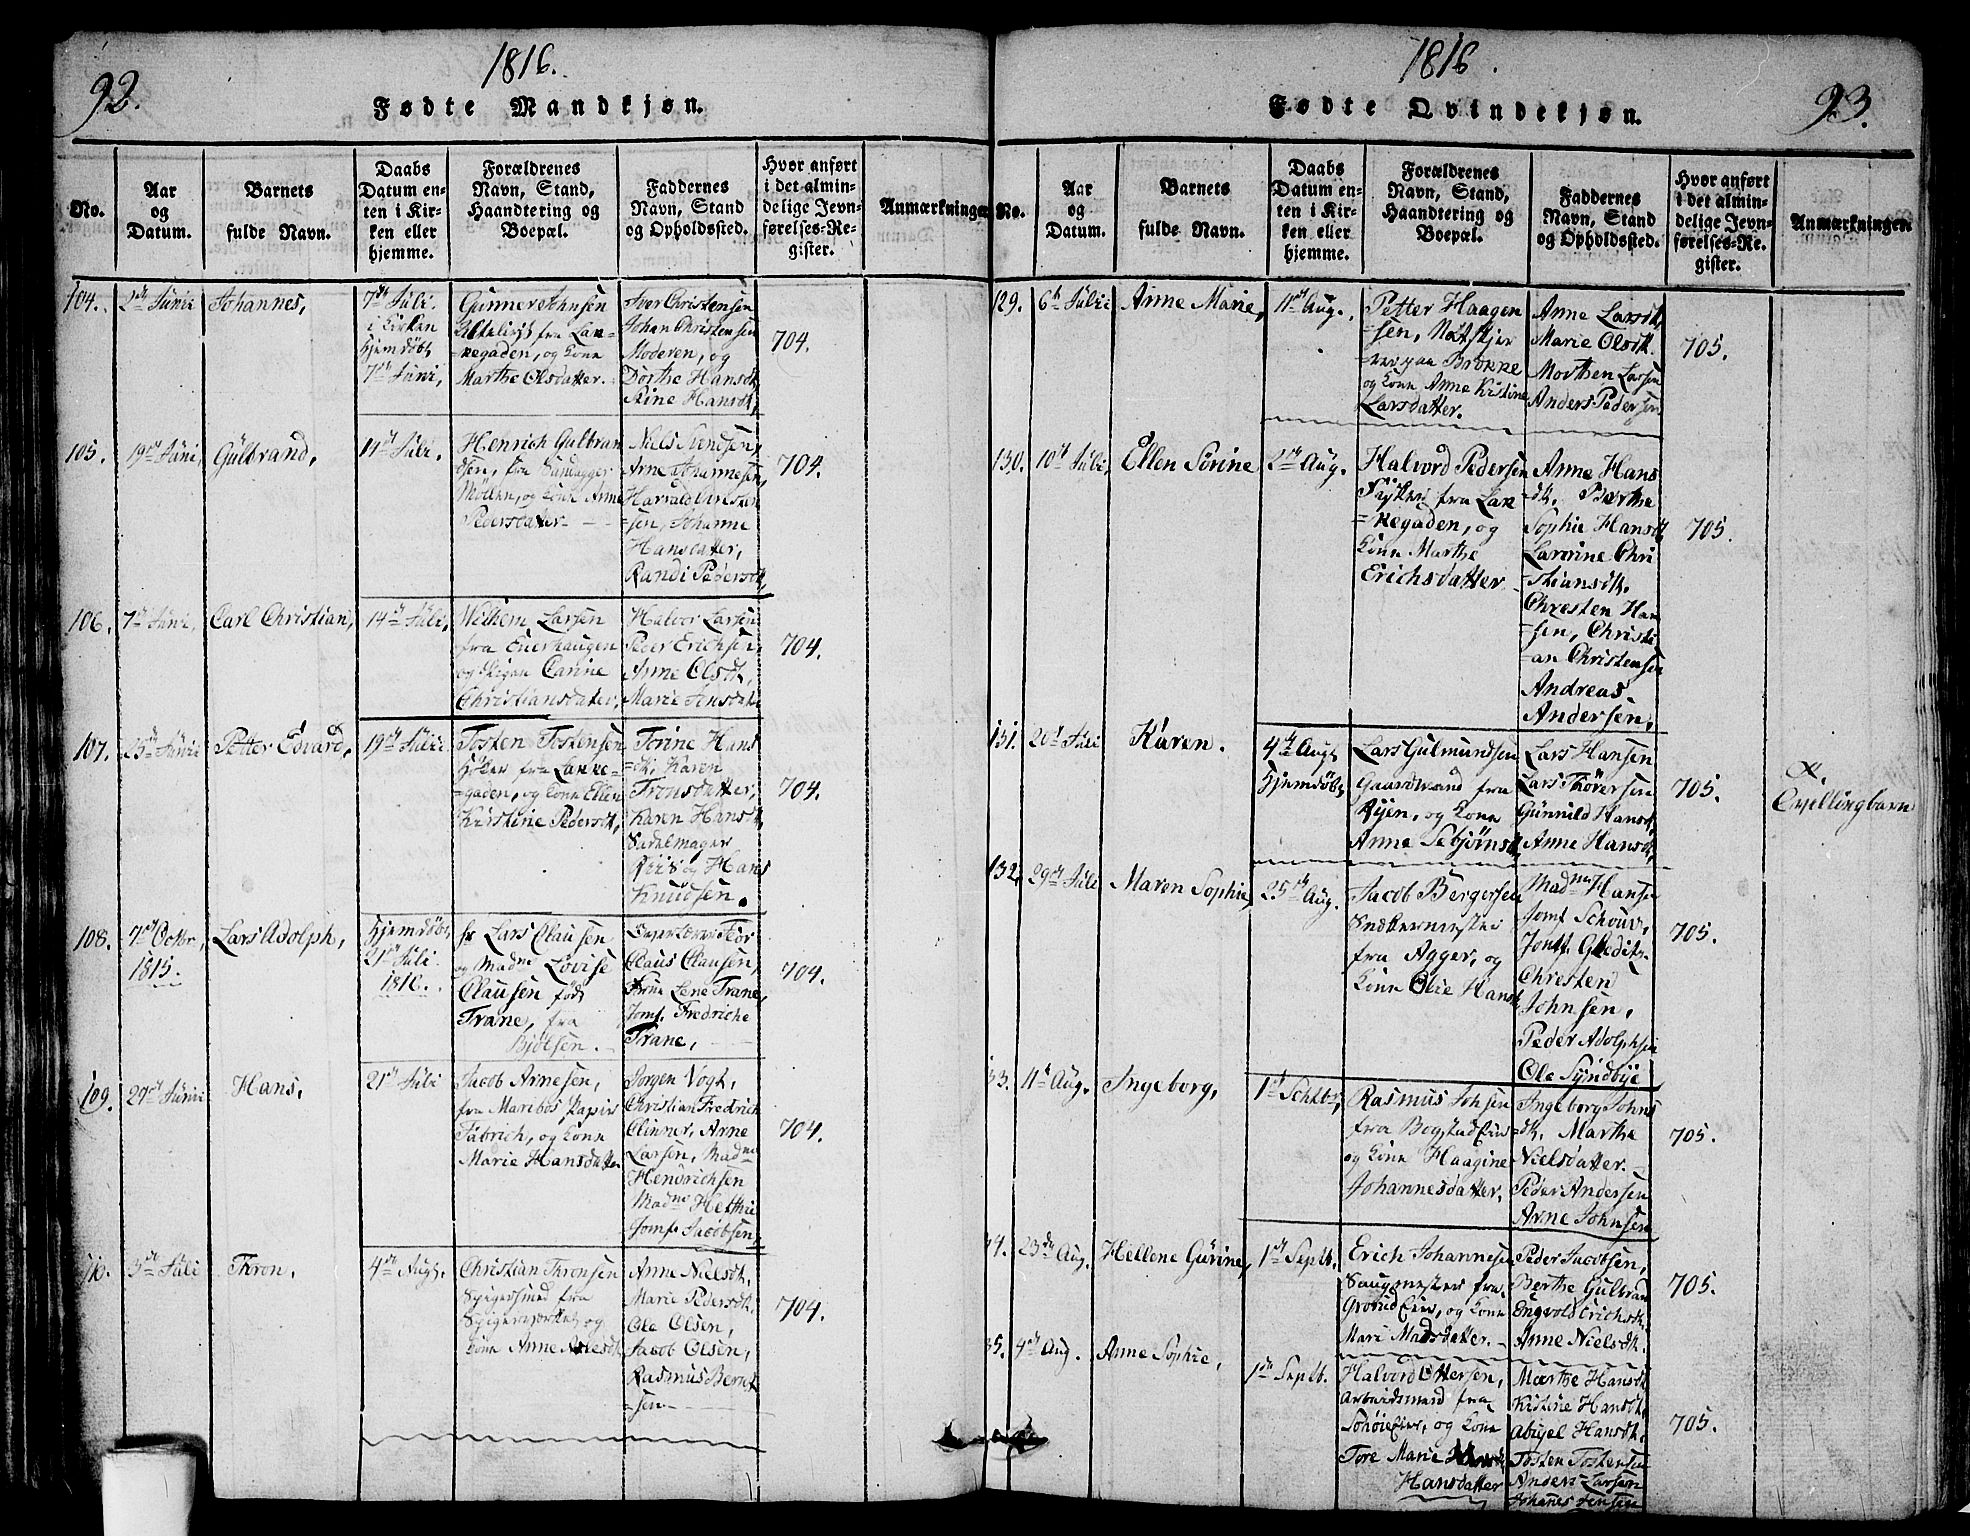 92.
1816.
Fødte Mandkjøn.
No.
Aar
og
Datum.
Barnets
fulde Navn.
Daabs
Datum en-
ten i Kir-
ken eller
hjemme.
Forældrenes
Navn, Stand,
Haandtering og
Boepæl.
Faddernes
Navn, Stand
og Opholdssted.
Hvor anført
i det almin-
delige Jevn-
førelses-Re-
gister.
Anmærkninger
104.
2den Junii
Johannes,
7de Juli.
i Kirken
hjemdøbt
7de Juni,
Gunner Johnsen
fra Lak-
=kegaden, og Kone
Marthe Olsdatter.
Iver Christensen
Johan Christensen
Moderen, og
Dorthe Hansdt,
Stine Hansdt,
704.
105.
19de Juni,
Gulbrand,
14de Juli.
Henrich Gulbran
dsen, fra Sandagger
Møllen, og Kone Anne
Pedersdatter - -
Niels Svendsen,
Arne Johannesen,
Harrald Christen
=sen, Johanne
Hansdatter,
Randi Pedersdt,
704.
106.
7de Juni,
Carl Christian,
14de Juli,
Wilhem Larsen
fra Enerhaugen
og Pigen Carine
Christiansdatter,
Halvor Larsen
Peder Erichsen,
Anne Olsdt.
Marie Jensdt.
704.
107.
25de Junii
Petter Edvard,
19de Julii
Tosten Tostensen
Høker fra Lakke-
=gaden, og Kone Ellen
Kristine Pedersdt,
Torine Hans
=dt, Karen
Tronsdatter,
Karen Hansdt,
Sadelmager
Riis og Hans
Knudsen.
704.
108.
7de Octbr,
1815.
Lars Adolph,
Hjemdøbt,
21de Juli.
1816.
hr Lars Clausen
og Madme Lovise
Clausen født
Trane, fra
Bjølsen. -
Claus Clausen,
Frue Lene Trane,
Jomf. Fredriche
Trane,
704.
109.
29de Junii
Hans,
21de Juli
Jacob Arnesen,
fra Maribos Papir
Fabrich, og Kone
Marie Hansdatter
Jørgen Vogt,
Christian Fredrich
Clinner, Arne
Larsen, Madme
Hendrichsen
Madme Hetthie
Jomf. Jacobsen,
704.
110.
3de Juli
Thron,
4de Augt.
Christian Thronsen
Spigersmed fra
Spigerverket og
Kone Anne Nielsdt.
Anne Nielsdt,
Marie Pedersdt.
Ole Olsen,
Jacob Olsen,
Rasmus Bernt
=sen.
704.
1816.
93.
Fødte Qvindekjøn.
No.
Aar
og
Datum.
Barnets
fulde Navn.
Daabs
Datum en-
ten i Kir-
ken eller
hjemme.
Forældrenes
Navn, Stand,
Haandtering og
Boepæl.
Faddernes
Navn, Stand
og Opholdssted.
Hvor anført
i det almin-
delige Jevn-
førelses-Re-
gister.
Anmærkninger
129.
6te Julii
Anne Marie,
11de Aug.
Petter Haagen
=sen,
Brokke
og Kone Anne Kistine
Larsdatter.
Anne Larsdt,
Marie Olsdt.
Morthen Larsen
Anders Pedersen
705.
130.
10de Juli,
Ellen Sørine
2de Aug.
Halvord Pedersen
Fysker fra Lak
=kegaden, og
Kone Marthe
Erichsdatter
Anne Hans
dt. Marthe
Sophie Hansdt,
Lavrine Chri
=stiansdt.
Chresten Han
=sen, Christi
=an Christensen
Andreas.
Andersen,
705.
131.
20de Juli
Karen.
4de Augt
hjemdøbt,
Lars Gulmundsen
Gaardmand fra
Ryen, og Kone
Anne Sebjørnsdt,
Lars Hansen
Lars Thoversen
Gunnild Hansdt,
Anne Hansdt,
705.
Qvellingbarn
132.
29de Juli
Maren Sophie,
25de Aug.
Jacob Bergersen
Snekkermester
fra Agger, og
Kone Olie Hansdt
Madme Hansen
Jomf Schouv,
Jomf. Gleditz.
Chresten
Johnsen,
Peder Adolphsen
Ole Syndbye
705.
33.
11te Aug.
Ingeborg,
1de Septbr,
Rasmus Johsen
fra Bogstad Eier
og Kone Haagine
Johannesdatter,
Ingeborg Johns
=dt, Marthe
Nielsdatter.
Peder Andersen
Arne Johnsen
705.
34.
23de Aug.
Hellene Gurine,
1de Septb.
Erich Johannesen
Saugmester fra
Grorud Eier, og Kone
Mari Madsdatter. -
Peder Jacobsen,
Berthe Gulbran
Engvold Erichsdt.
Anne Nielsdt.
705.
35.
4de Aug.
Anne Sophie,
1de Septb.
Halvord Ottersen,
Arbeidsmand fra
og Kone
Tore Marie
Hansdatter
Marthe Hansdt,
Kistine Hansdt,
Abigel Hansdt,
Tosten Tostensen
Anders Larsen
Johanes Jensen
705.